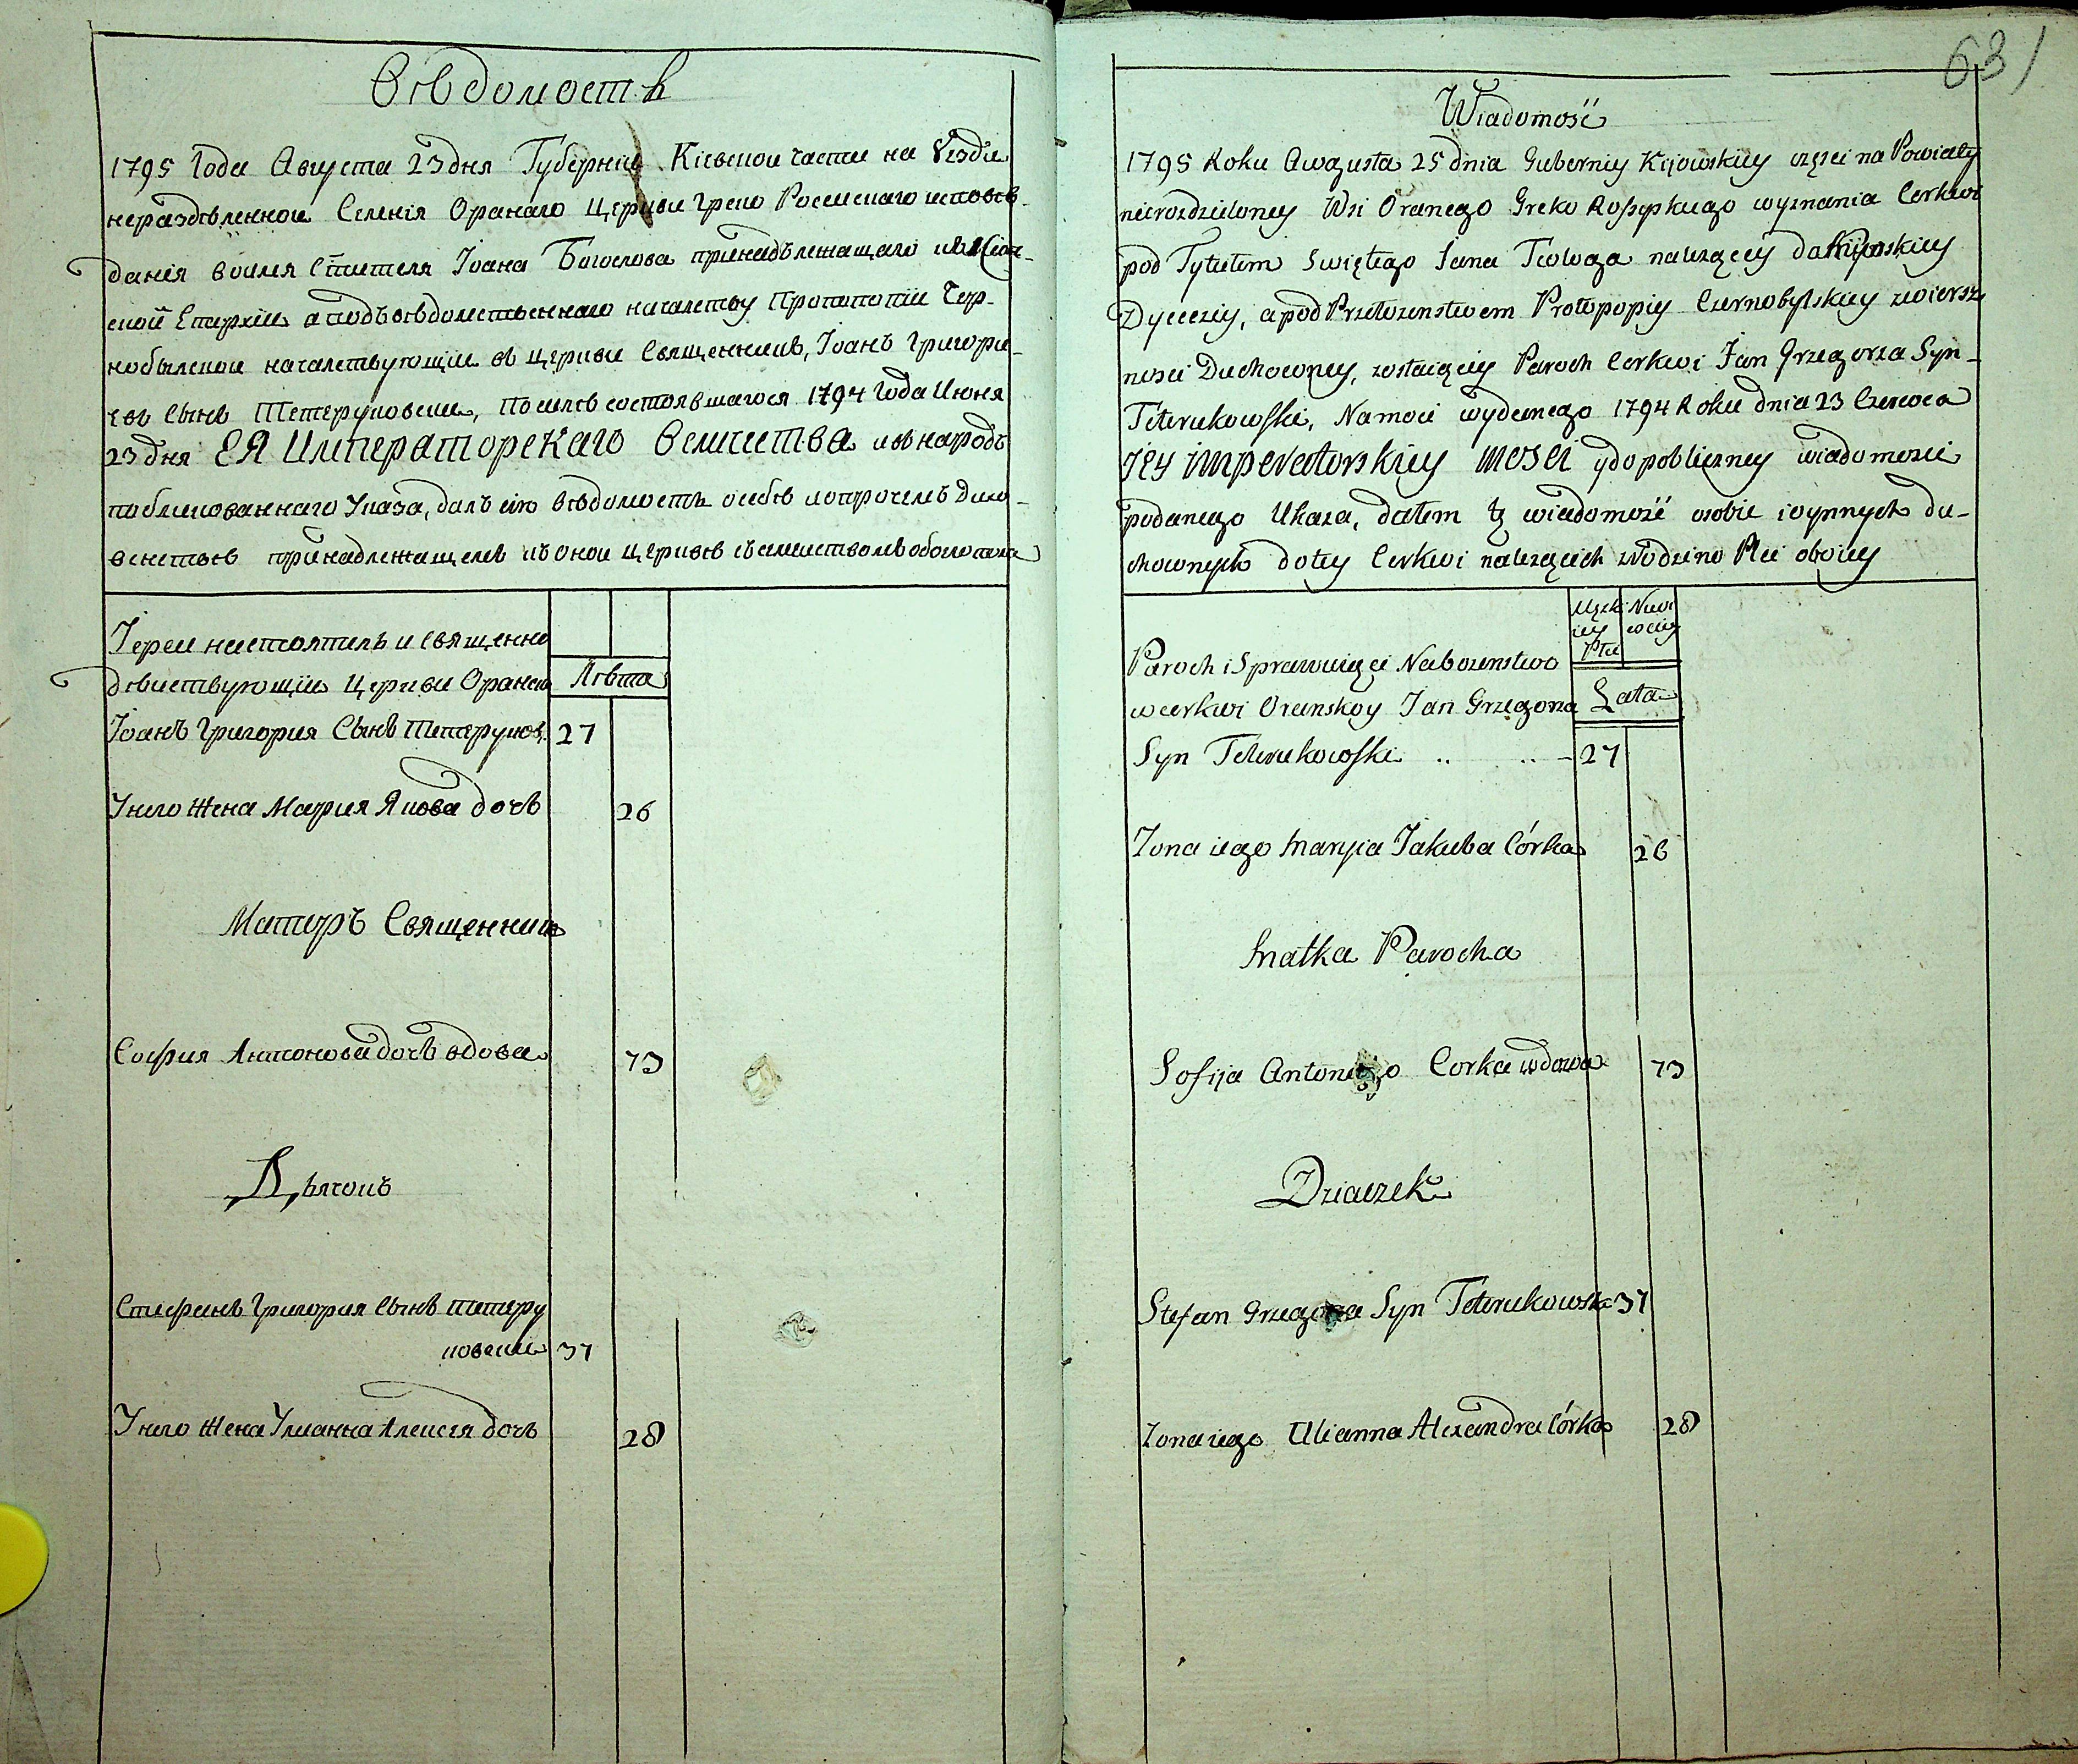 Вѣдомость
1795 Года Августа 23 дня Губернiи Кiевской части на Уезди
нераздѣленной Селенiя Ораного Церкви Греко Россискаго исповѣ-
данiя воимя Стителя Iоана Богослова принадълежащаго къ Кiев-
ской Епархiи а подъ вѣдомственнаго началству Протопопiи Чер-
нобылской началствующiи въ Церкви Священникъ, Iоанъ Григори-
евъ Сынъ Тетеруковски, По силѣ состоявшагося 1794 Года Июня
23 дня ЕЯ Императорскаго Величества и въ народъ
публикованнаго Указа, далъ сiю вѣдомость о себѣ и о прочемъ Духо-
венствѣ принадлежащемъ къ оной Церквѣ съ семиствомъ обоего пола
Iереи настоятель и Священно
дѣиствующiи Церкви Оранской
Лѣта
Iоанъ Григория Сынъ Тетеруков. 27
У него Жена Мария Якова дочь 26
Матерь Священника
София Антонова дочь вдова 73
Дьячокъ
Стефанъ Григория Сынъ тетеру
ковски 37
У него Жена Улианна Алексея дочь 28
631
Wiadomość
1795 Roku Awgusta 25 dnia Guberniy Kijowskiey części na Powiaty
nierozdzieloney Wsi Oranego Greko Rossyskiego wyznania Cerkwi
pod Tytułem Swiętego Jana Teologa należącey do Kijowskiey
Dyeceziy, a pod Przełożenstwem Protopopiy Czernobylskiey zwiersz-
nosci Duchowney, zostaiącey Paroch Cerkwi Jan Grzegorza Syn-
Teterukowski, Na moci wydanego 1794 Roku dnia 23 Czerwca
JEY imperatorskiey mosci y do pobliczney wiadomosci
podanego Ukaza, dałem tę wiadomość o sobie i oynnych du-
chownych do tey Cerkwi należących z Rodzino Płci oboiey
Męzk Niewi
iey esciey
Płci
Paroch i Sprawuiący Nabozenstwo
w cerkwi Oranskoy Jan Grzegorza
Lata
Syn Teterukowski .. .. - 27
Zona iego Maryia Jakuba Córka 26
Matka Parocha
Sofija Antoniego Corka wdowa 73
Dziaczek
Stefan Grzegorza Syn Teterukowski 37
Zona iego Ulianna Alexandra Córka 28